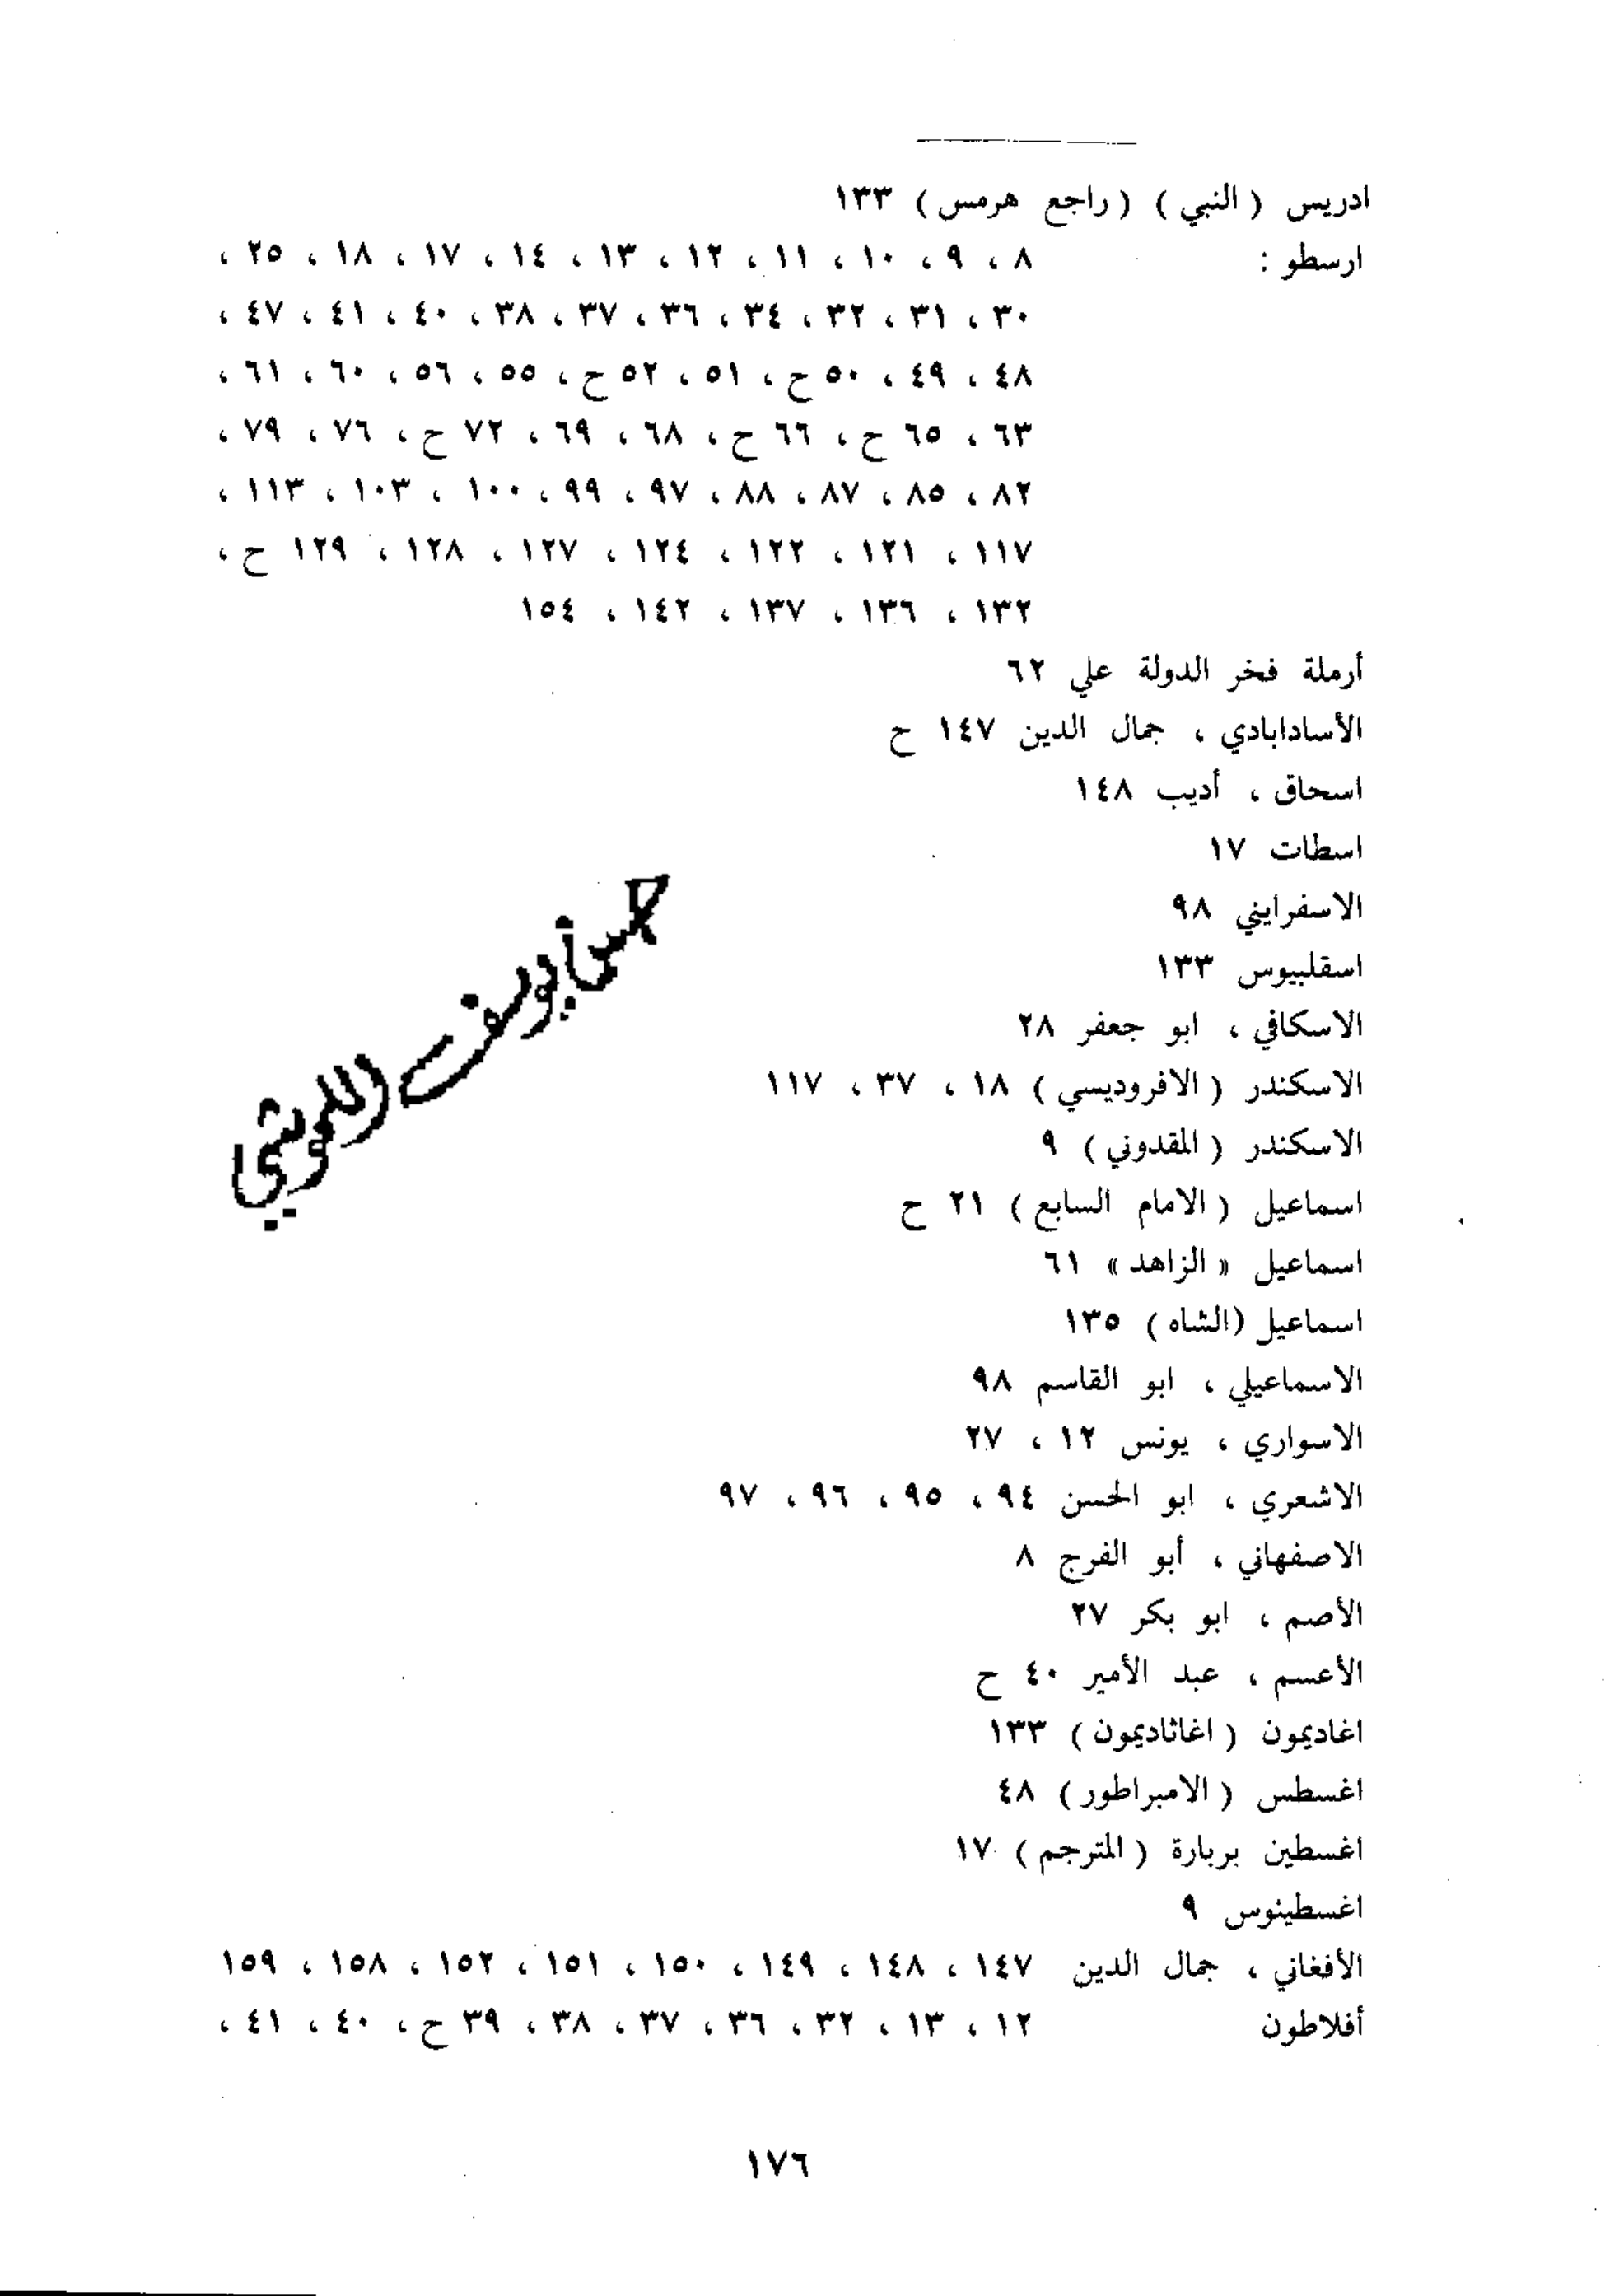 ادريس ( النبي ) ( راجع هرمس ) ١٣٣
ارسطو : ٨ ، ٩ ، ١٠ ، ١١ ، ١٢ ، ١٣ ، ١٤ ، ١٧ ، ١٨ ، ٢٥ ،
٣٠ ، ٣١ ، ٣٢ ، ٣٤ ، ٣٦ ، ٣٧ ، ٣٨ ، ٤٠ ، ٤١ ، ٤٧ ،
٤٨ ، ٤٩ ، ٥٠ ح ، ٥١ ، ٥٢ ح ، ٥٥ ، ٥٦ ، ٦٠ ، ٦١ ،
٦٣ ، ٦٥ ح ، ٦٦ ح ، ٦٨ ، ٦٩ ، ٧٢ ح ، ٧٦ ، ٧٩ ،
٨٢ ، ٨٥ ، ٨٧ ، ٨٨ ، ٩٧ ، ٩٩ ، ١٠٠ ، ١٠٣ ، ١١٣ ،
١١٧ ، ١٢١ ، ١٢٢ ، ١٢٤ ، ١٢٧ ، ١٢٨ ، ١٢٩ ح ،
١٣٢ ، ١٣٦ ، ١٣٧ ، ١٤٢ ، ١٥٤
أرملة فخر الدولة علي ٦٢
الأسادابادي ، جمال الدين ١٤٧ ح
اسحاق ، أديب ١٤٨
اسطات ١٧
الاسفرايني ٩٨
اسقلبيوس ١٣٣
الاسكافي ، ابو جعفر ٢٨
الاسكندر ( الافروديسي ) ١٨ ، ٣٧ ، ١١٧
الاسكندر ( المقدوني ) ٩
اسماعيل ( الامام السابع ) ٢١ ح
اسماعيل « الزاهد » ٦١
اسماعيل (الشاه ) ١٣٥
الاسماعيلي ، ابو القاسم ٩٨
الاسواري ، يونس ١٢ ، ٢٧
الاشعري ، ابو الحسن ٩٤ ، ٩٥ ، ٩٦ ، ٩٧
الاصفهاني ، أبو الفرج ٨
الأصم ، ابو بكر ٢٧
الأعسم ، عبد الأمير ٤٠ ح
اغاديمون ( اغاثاديمون ) ١٣٣
اغسطس ( الامبراطور ) ٤٨
اغسطين بربارة ( المترجم ) ١٧
اغسطينوس ٩
الأفغاني ، جمال الدين ١٤٧ ، ١٤٨ ، ١٤٩ ، ١٥٠ ، ١٥١ ، ١٥٢ ، ١٥٨ ، ١٥٩
أفلاطون ١٢ ، ١٣ ، ٣٢ ، ٣٦ ، ٣٧ ، ٣٨ ، ٣٩ ح ، ٤٠ ، ٤١ ،
١٧٦